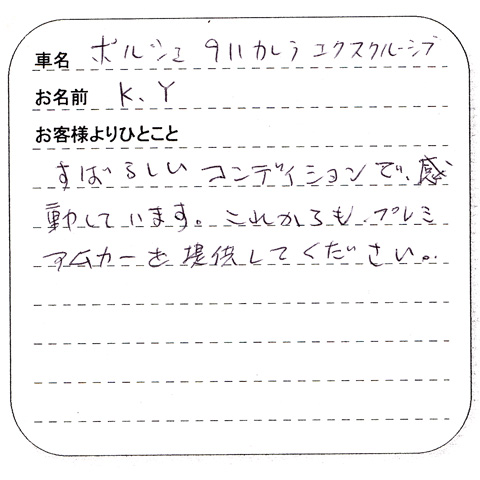 車名 ポルシェ 911カレラ エクスクルーシブ
お名前 K.Y
お客様よりひとこと
すばらしいコンディションで、感
動しています。これからも、プレミ
アムカーを提供してください。